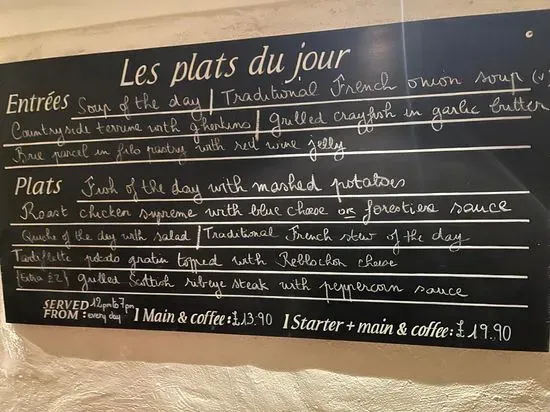 Les plats du jour
Entrées Soup of the day / Traditional French onion soup (v
Countryside terrine with gherkins / Grilled crayfish in garlic butter
Brie parcel in filo pastry with red wine jelly
Plats Fish of the day with mashed potatoes
Roast chicken supreme with blue cheese or forestiere sauce
Quiche of the day with salad / Traditional French stew of the day
Tartiflette potato gratin topped with Reblochon cheese
(Extra £2) grilled Scottish ribeye steak with peppercorn sauce
SERVED FROM: 12pm to 7pm every day 1 Main & coffee: £13.90 1 Starter + main & coffee: £19.90